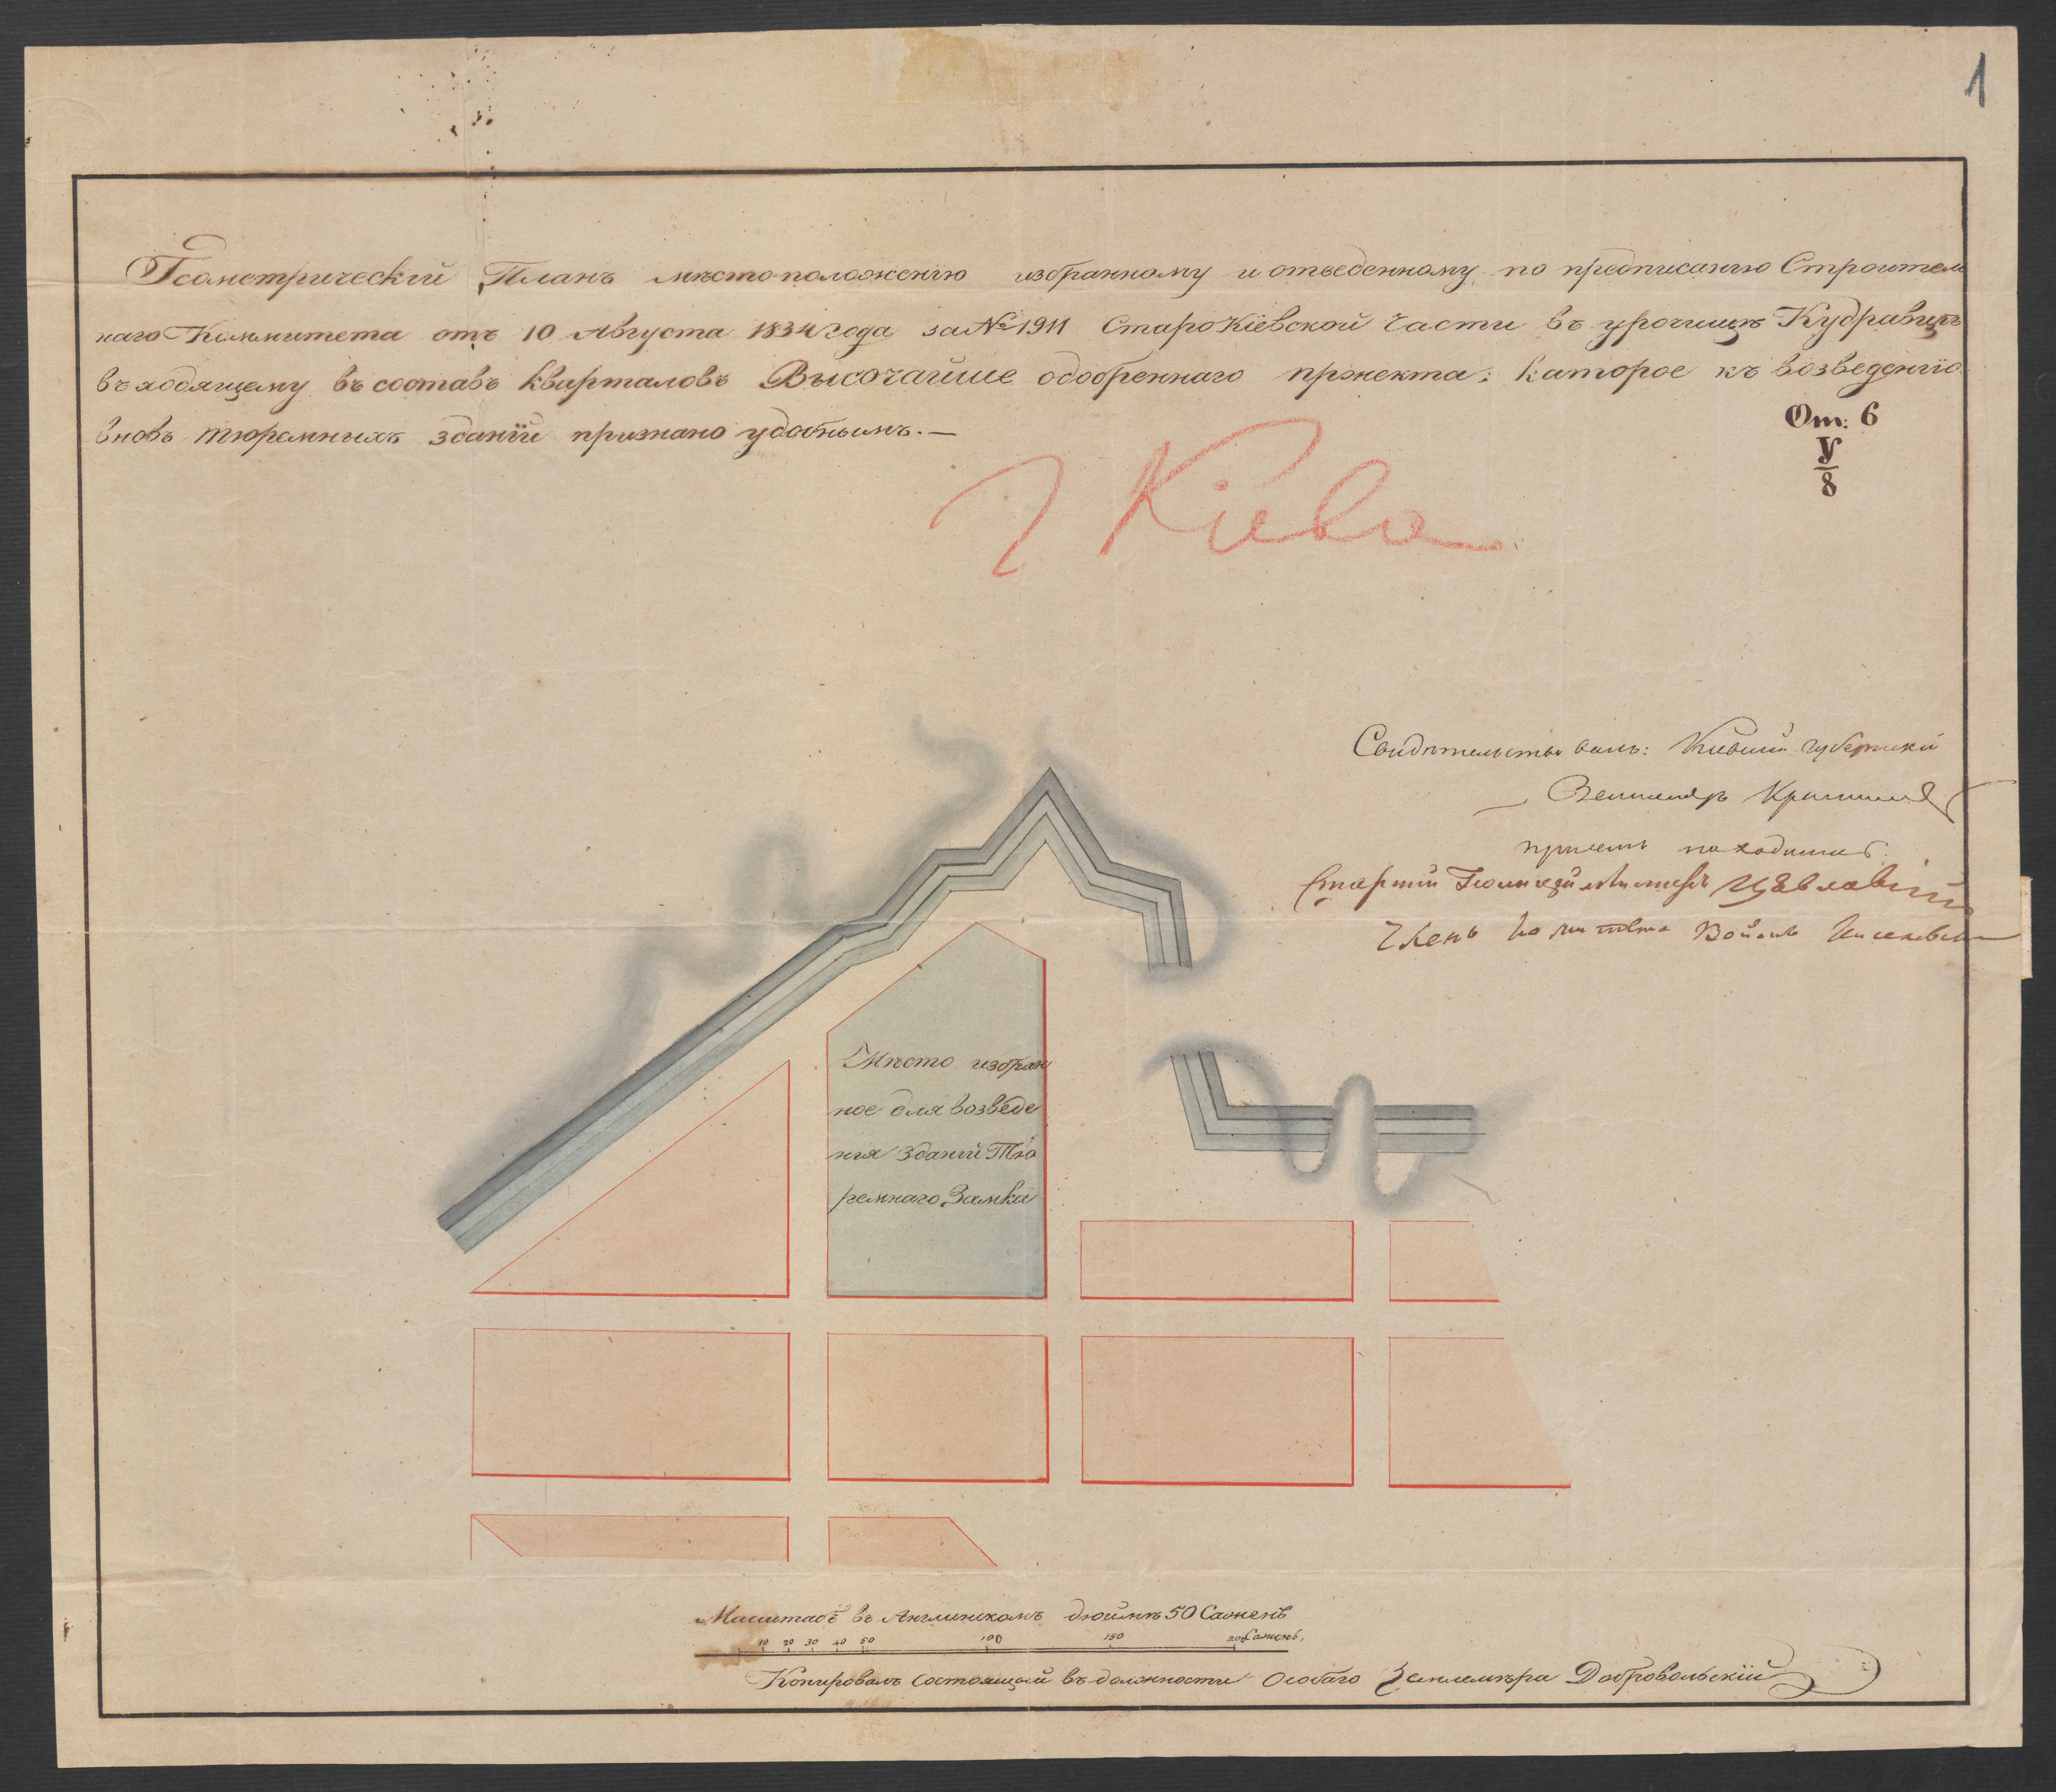 1
Геометрический Планъ мѣсто положенію избранному и отведенному по предписанію Строител
наго Коммитета отъ 10 Августа 1834 года за № 1911 Старо Кіевской Части въ урочищѣ Кудравицѣ
въ ходящему въ составъ кварталовъ Высочайше одобреннаго прэжекта: каторое къ возведенію
вновь тюремныхъ зданій признано удобнымъ. —
От: 6
У
8
г Кіева
Свидѣтельствовалъ: Кіевскій губернскій
Землемѣръ
при семъ находились
Старшій Полицеймейстеръ
Членъ Комитета
Мѣсто избран
ное для возведе
нія Зданій Тю
ремнаго Замка
Масштабъ въ Англинскомъ дюймѣ 50 Саженъ
10 20 30 40 50 100 150 200 Сажень,
Копировалъ Состоящій въ должности Особаго Землемѣра Добровольскій